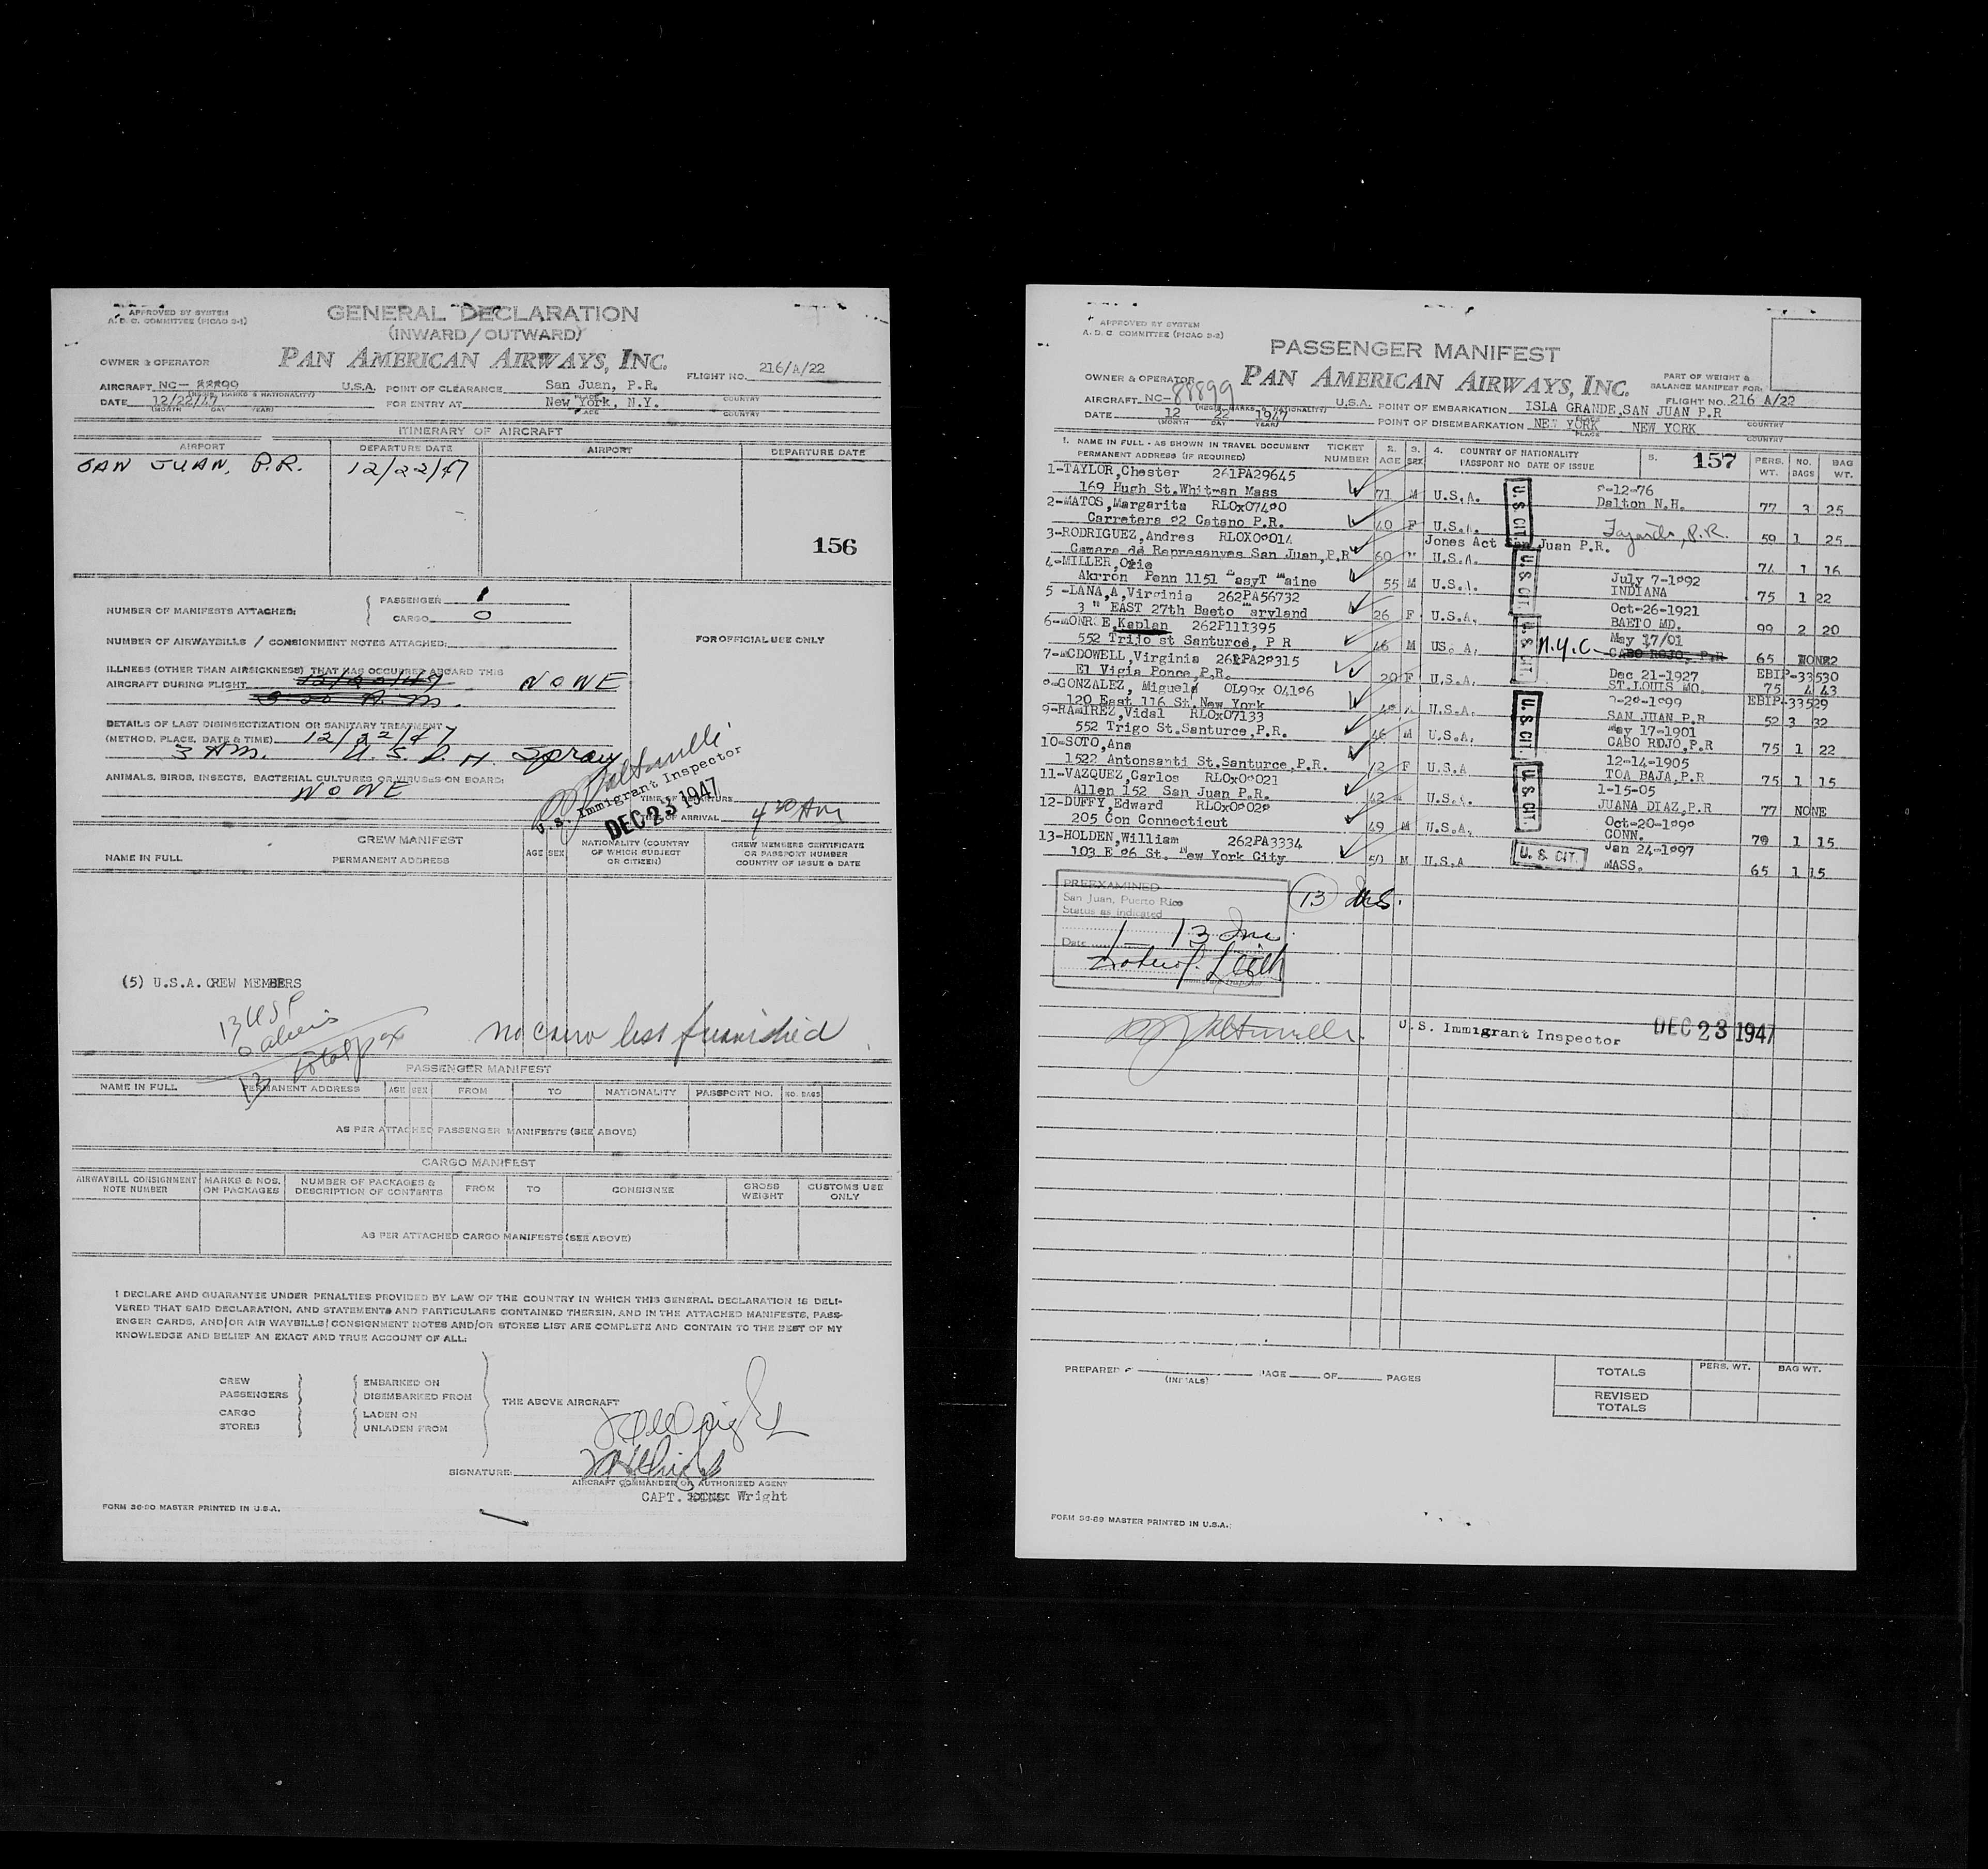 APPROVED BY SYSTEM
A. D. C. COMMITTEE (PICAO 2-1)
GENERAL DECLARATION
(INWARD/OUTWARD)
OWNER & OPERATOR
PAN AMERICAN AIRWAYS, INC.
FLIGHT NO. 216/A/22
AIRCRAFT NC- 88899 U.S.A. POINT OF CLEARANCE San Juan, P.R.
(REGIS. MARKS & NATIONALITY) PLACE COUNTRY
DATE 12/22/47 FOR ENTRY AT New York, N.Y.
(MONTH DAY YEAR) PLACE COUNTRY
ITINERARY OF AIRCRAFT
AIRPORT DEPARTURE DATE AIRPORT DEPARTURE DATE
SAN JUAN, P.R. 12/22/47
156
NUMBER OF MANIFESTS ATTACHED: PASSENGER 1
CARGO 0
NUMBER OF AIRWAYBILLS / CONSIGNMENT NOTES ATTACHED:
FOR OFFICIAL USE ONLY
ILLNESS (OTHER THAN AIRSICKNESS) THAT HAS OCCURRED ABOARD THIS
AIRCRAFT DURING FLIGHT NONE
DETAILS OF LAST DISINSECTIZATION OR SANITARY TREATMENT
(METHOD, PLACE, DATE & TIME) 12/22/47
3 AM. U.S.P.H. Spray
ANIMALS, BIRDS, INSECTS, BACTERIAL CULTURES OR VIRUSES ON BOARD:
NONE
U.S. Immigrant Inspector
DEC 23 1947
TIME OF DEPARTURE
TIME OF ARRIVAL 4 30 AM
CREW MANIFEST
NAME IN FULL PERMANENT ADDRESS AGE SEX NATIONALITY (COUNTRY OF WHICH SUBJECT OR CITIZEN) CREW MEMBERS CERTIFICATE OR PASSPORT NUMBER COUNTRY OF ISSUE & DATE
(5) U.S.A. CREW MEMBERS
13 USP
0 aliens
13 total pax
no crew list furnished
PASSENGER MANIFEST
NAME IN FULL PERMANENT ADDRESS AGE SEX FROM TO NATIONALITY PASSPORT NO. NO. BAGS
AS PER ATTACHED PASSENGER MANIFESTS (SEE ABOVE)
CARGO MANIFEST
AIRWAYBILL CONSIGNMENT NOTE NUMBER MARKS & NOS. ON PACKAGES NUMBER OF PACKAGES & DESCRIPTION OF CONTENTS FROM TO CONSIGNEE GROSS WEIGHT CUSTOMS USE ONLY
AS PER ATTACHED CARGO MANIFESTS (SEE ABOVE)
I DECLARE AND GUARANTEE UNDER PENALTIES PROVIDED BY LAW OF THE COUNTRY IN WHICH THIS GENERAL DECLARATION IS DELI-
VERED THAT SAID DECLARATION, AND STATEMENTS AND PARTICULARS CONTAINED THEREIN, AND IN THE ATTACHED MANIFESTS, PASS-
ENGER CARDS, AND/OR AIR WAYBILLS/CONSIGNMENT NOTES AND/OR STORES LIST ARE COMPLETE AND CONTAIN TO THE BEST OF MY
KNOWLEDGE AND BELIEF AN EXACT AND TRUE ACCOUNT OF ALL:
CREW EMBARKED ON
PASSENGERS DISEMBARKED FROM
THE ABOVE AIRCRAFT
CARGO LADEN ON
STORES UNLADEN FROM
SIGNATURE:
AIRCRAFT COMMANDER OR AUTHORIZED AGENT
CAPT. Wright
FORM 36-90 MASTER PRINTED IN U.S.A.
APPROVED BY SYSTEM
A. D. C. COMMITTEE (PICAO 2-2)
PASSENGER MANIFEST
OWNER & OPERATOR
PAN AMERICAN AIRWAYS, INC.
PART OF WEIGHT &
BALANCE MANIFEST FOR:
FLIGHT NO. 216 A/22
AIRCRAFT NC- 88899 U.S.A. POINT OF EMBARKATION ISLA GRANDE, SAN JUAN P.R
(REGIS. MARKS & NATIONALITY) PLACE COUNTRY
DATE 12 22 1947 POINT OF DISEMBARKATION NEW YORK NEW YORK
(MONTH DAY YEAR) PLACE COUNTRY
1. NAME IN FULL - AS SHOWN IN TRAVEL DOCUMENT TICKET 2. 3. 4. COUNTRY OF NATIONALITY 5. 157 PERS. NO. BAG
PERMANENT ADDRESS (IF REQUIRED) NUMBER AGE SEX PASSPORT NO DATE OF ISSUE WT. BAGS WT.
1-TAYLOR, Chester 261PA29645 8-12-76
169 Hugh St. Whitman Mass 71 M U.S.A. Dalton N.H. 77 3 25
2-MATOS, Margarita RLOx07480
Carretera 22 Catano P.R. 40 F U.S.A. Fajardo, P.R. 59 1 25
3-RODRIGUEZ, Andres RLOX08014 Jones Act San Juan P.R.
Camara de Represanyes San Juan, P.R 60 " U.S.A. 74 1 16
4-MILLER, Orie July 7-1892
Akrron Penn 1151 EasyT Maine 55 M U.S.A. INDIANA 75 1 22
5 -LANA, A, Virginia 262PA56732 Oct-26-1921
3 " EAST 27th Baeto Maryland 26 F U.S.A. BAETO MD. 99 2 20
6-MONR E, Kaplan 262P111395 May 17/01
552 Trijo st Santurce, P R 46 M US. A. N.Y.C. CABO ROJO, P.R 65 NONE2
7-MCDOWELL, Virginia 261PA28315 Dec 21-1927 EBIP-33530
El Vigia Ponce, P.R. 20 F U.S.A. ST.LOUIS MO. 75 4 43
8-GONZALEZ, Miguela OL99x 04186 8-28-1899 EBIP-33529
120 East 116 St. New York 48 U.S.A. SAN JUAN P.R 52 3 32
9-RAMIREZ, Vidal RLOx07133 May 17-1901
552 Trigo St.Santurce, P.R. 46 M U.S.A. CABO ROJO, P.R 75 1 22
10-SOTO, Ana 12-14-1905
1522 Antonsanti St.Santurce, P.R. 42 F U.S.A TOA BAJA, P.R 75 1 15
11-VAZQUEZ, Carlos RLOx08021 1-15-05
Allen 152 San Juan P.R. 42 U.S.A. JUANA DIAZ, P.R 77 NONE
12-DUFFY, Edward RLOx08028 Oct-20-1898
205 Con Connecticut 49 M U.S.A. CONN. 79 1 15
13-HOLDEN, William 262PA3334 Jan 24-1897
103 E 86 St. New York City 50 M U.S.A MASS. 65 1 15
U.S. CIT.
U.S. CIT.
U.S. CIT.
U.S. CIT.
U.S. CIT.
U. S. CIT.
PREEXAMINED
San Juan, Puerto Rico
Status as indicated
Date
13
13 U.S.
U.S. Immigrant Inspector DEC 23 1947
PREPARED (INITIALS) PAGE OF PAGES
TOTALS PERS. WT. BAG WT.
REVISED TOTALS
FORM 36-89 MASTER PRINTED IN U.S.A.